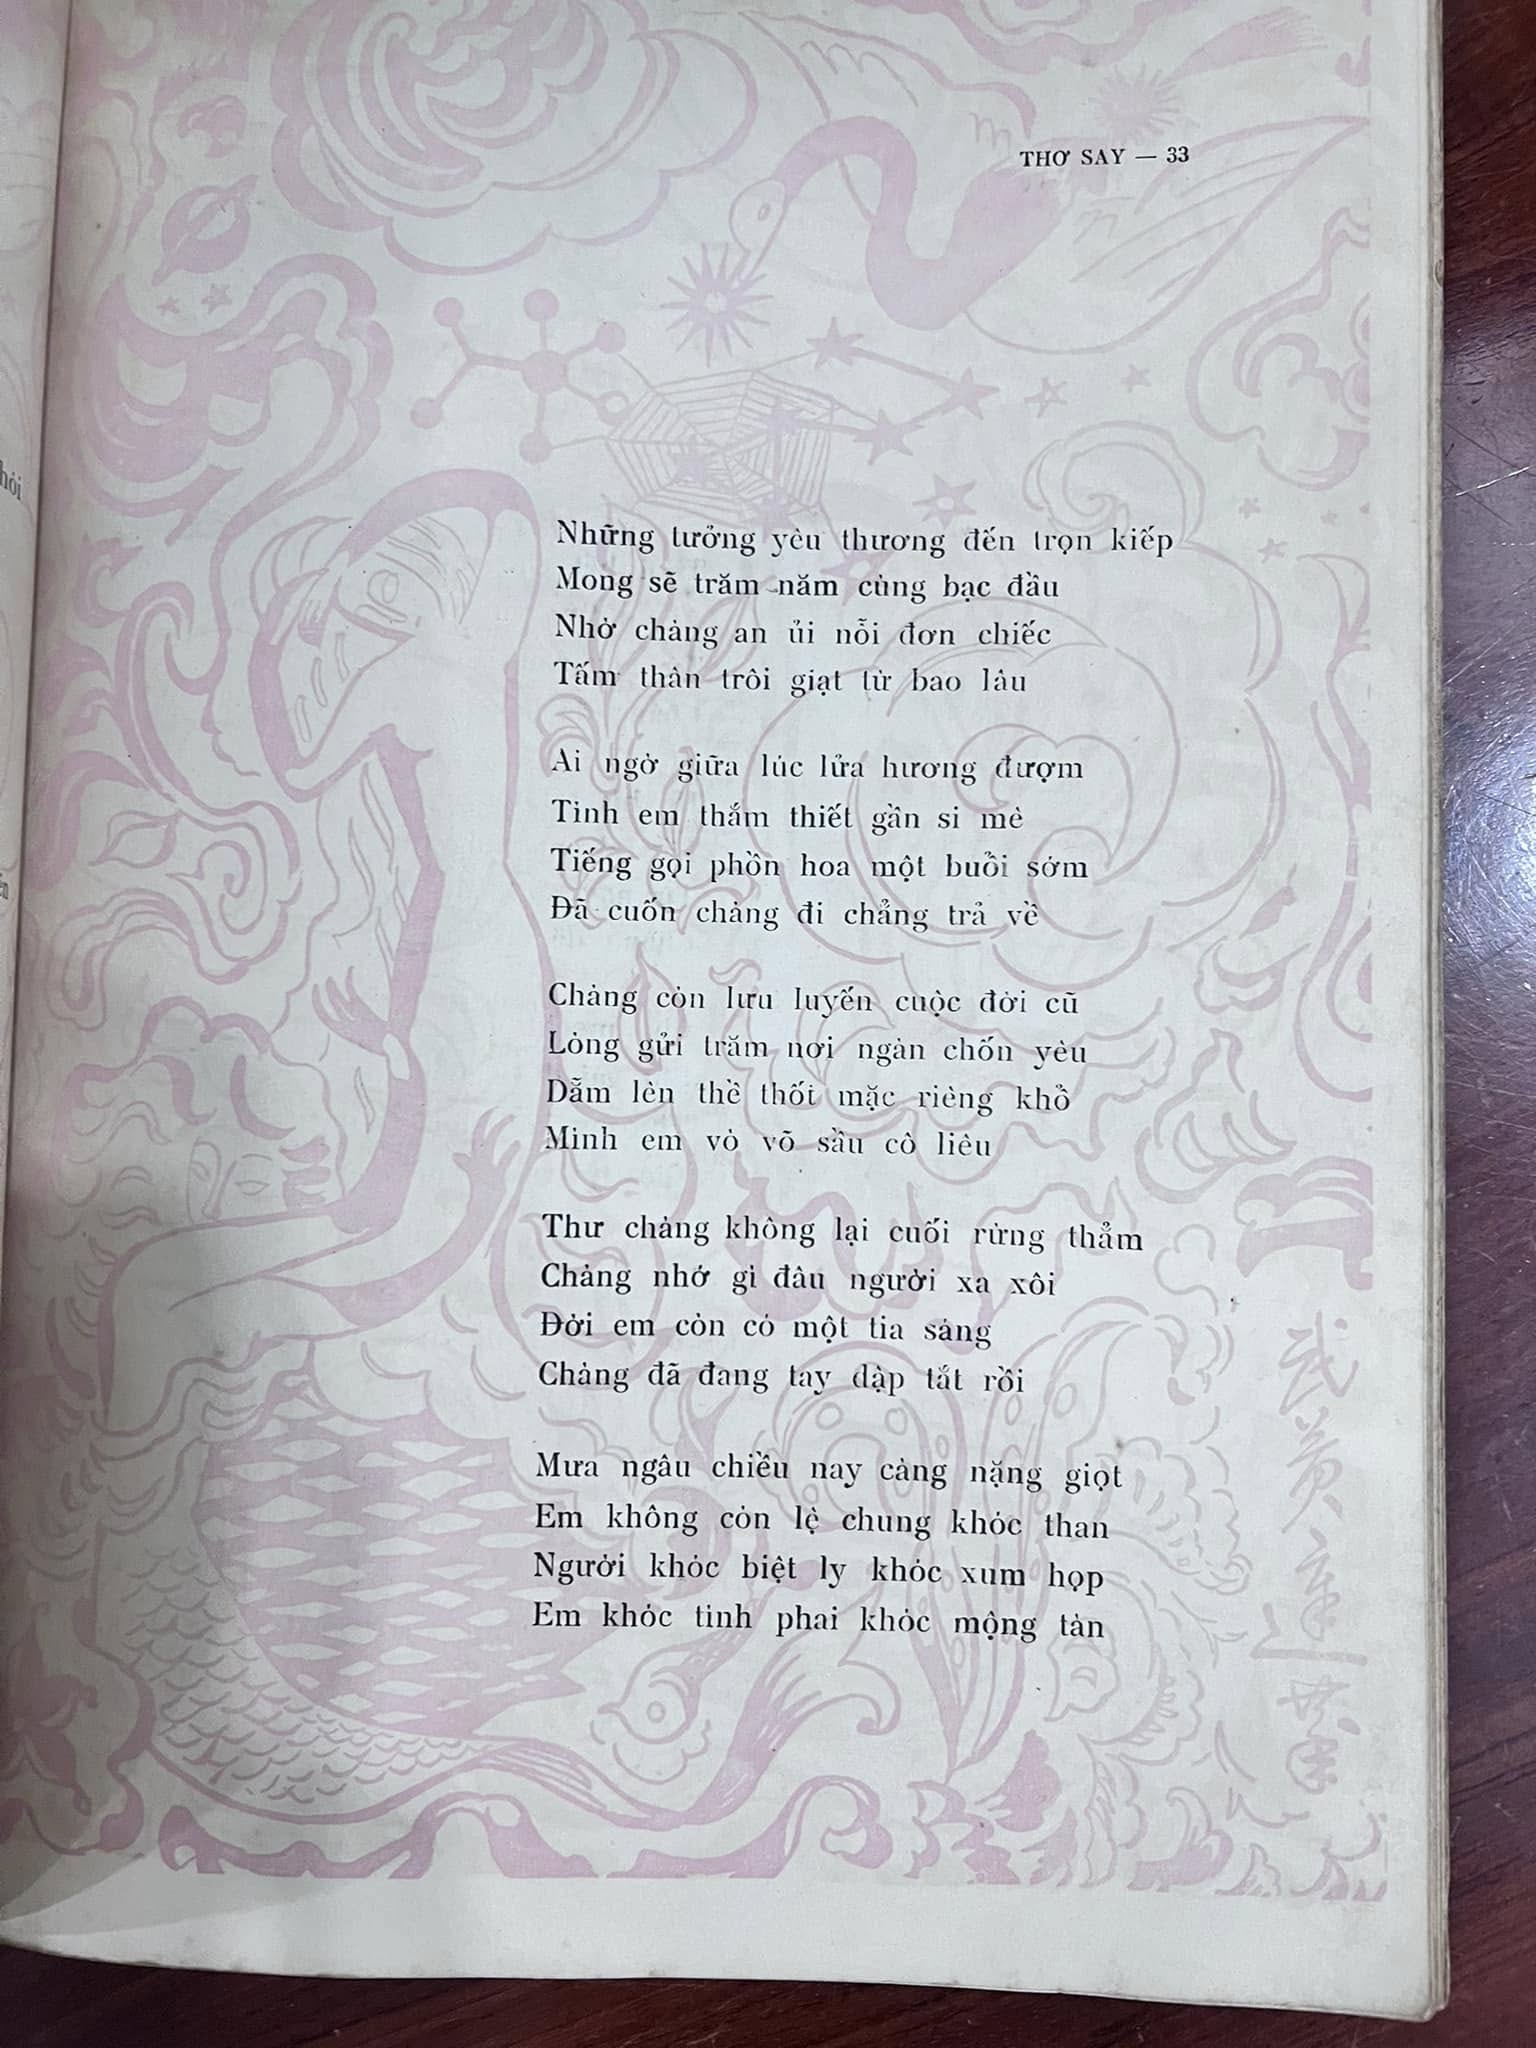 THƠ SAY — 33
hỏi
Những tưởng yêu thương đến trọn kiếp
Mong sẽ trăm năm cùng bạc đầu
Nhờ chàng an ủi nỗi đơn chiếc
Tấm thân trôi giạt từ bao lâu
Ai ngờ giữa lúc lửa hương đượm
Tình em thắm thiết gần si mê
Tiếng gọi phồn hoa một buổi sớm
Đã cuốn chàng đi chẳng trả về
Chàng còn lưu luyến cuộc đời cũ
Lòng gửi trăm nơi ngàn chốn yêu
Dẫm lên thề thốt mặc riêng khổ
Mình em vò võ sầu cô liêu
Thư chàng không lại cuối rừng thẳm
Chàng nhớ gì đâu người xa xôi
Đời em còn có một tia sáng
Chàng đã đang tay dập tắt rồi
Mưa ngâu chiều nay càng nặng giọt
Em không còn lệ chung khóc than
Người khóc biệt ly khóc xum họp
Em khóc tình phai khóc mộng tàn